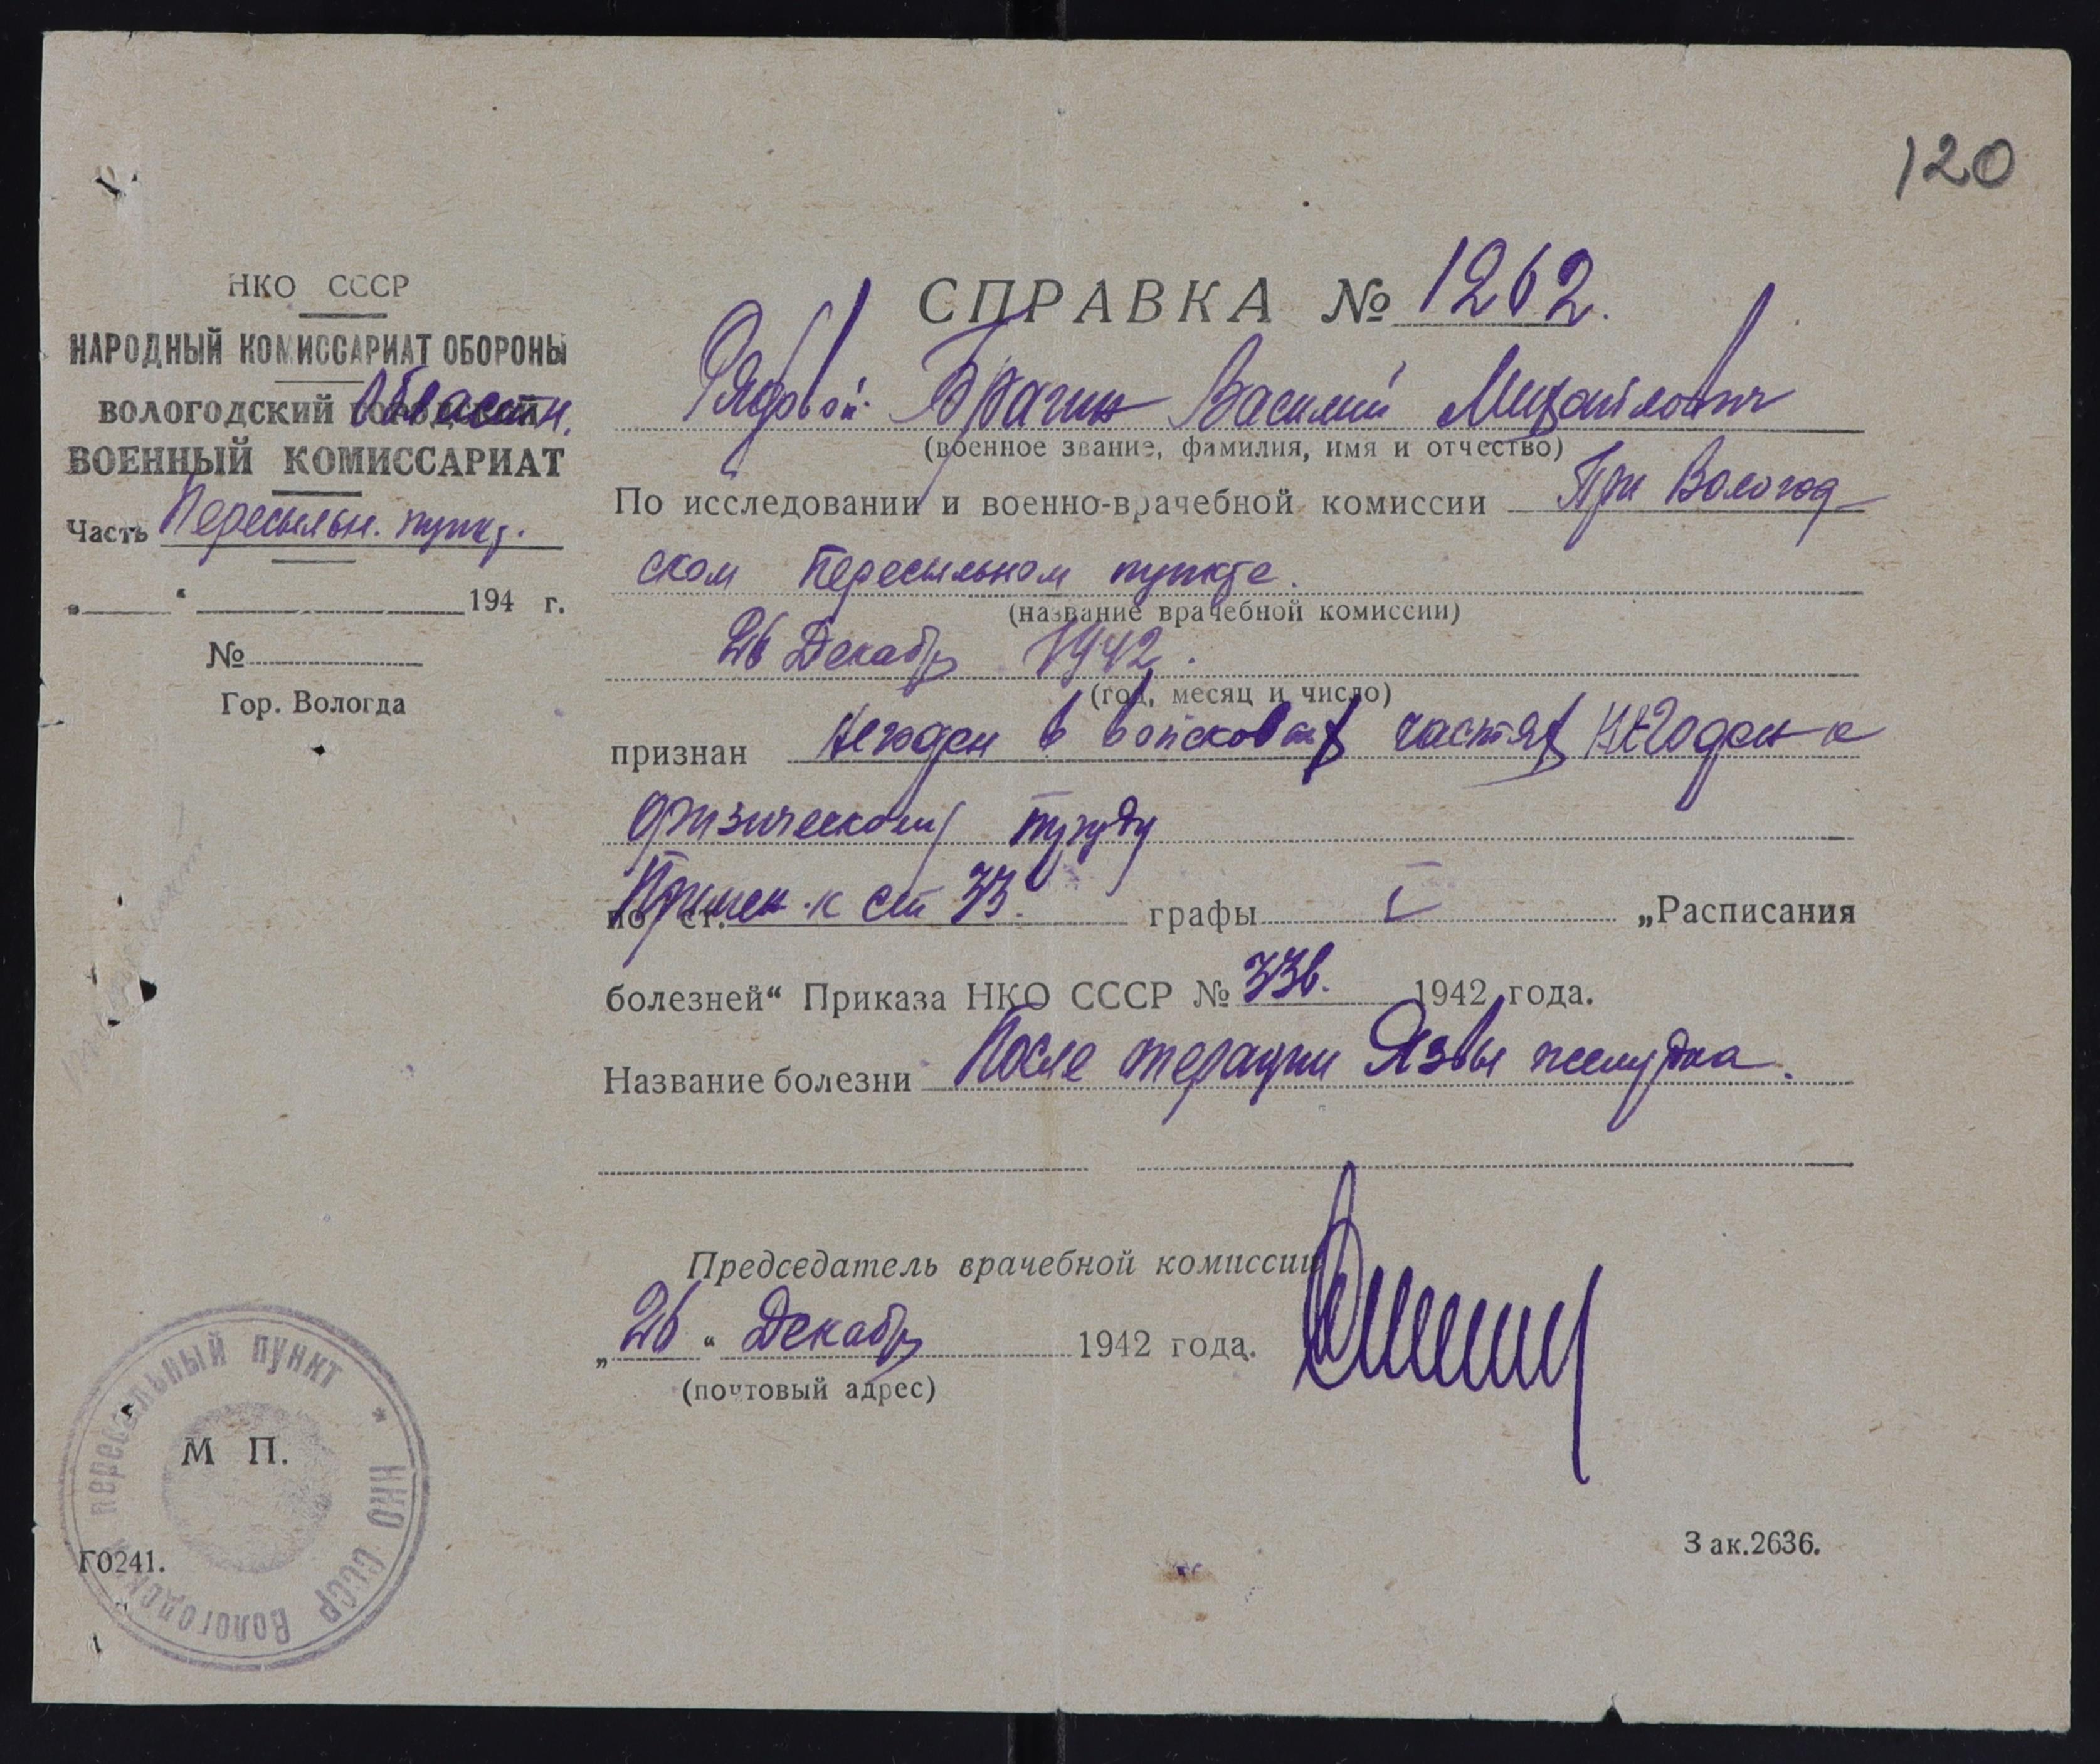 120
НКО СССР
НАРОДНЫЙ КОМИССАРИАТ ОБОРОНЫ
ВОЛОГОДСКИЙ Областн.
ВОЕННЫЙ КОМИССАРИАТ
Часть Пересыльн. пункт.
„ “ 194 г.
№
Гор. Вологда
СПРАВКА № 1262.
Рядовой Брагин Василий Михайлович
(военное звание, фамилия, имя и отчество)
По исследовании и военно-врачебной комиссии При Вологод
ском пересыльном пункте.
(название врачебной комиссии)
26 Декабр 1942.
(год, месяц и число)
признан Негоден в войсковых частях Негоден к
физическому труду
по ст. Примен. к ст 33. графы I „Расписания
болезней“ Приказа НКО СССР № 336. 1942 года.
Название болезни После операции Язвы желудка.
Председатель врачебной комиссии
„26“ Декабр 1942 года.
(почтовый адрес)
М П.
НКО СССР Вологодский пересыльный пункт *
Г0241.
Зак.2636.